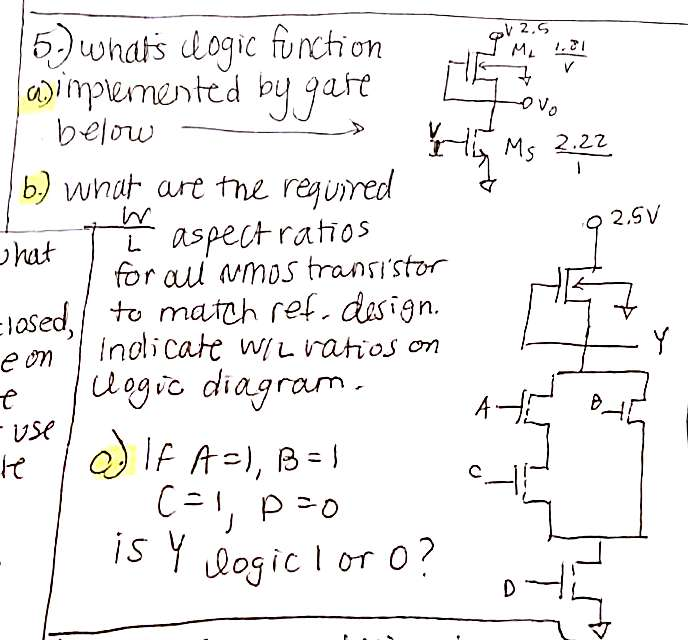 5.) what's logic function
a) implemented by gate
below
b.) what are the required
W/L aspect ratios
for all NMOS transistor
to match ref. design.
Indicate W/L ratios on
logic diagram.
a) If A=1, B=1
C=1, D=0
is Y logic 1 or 0?
V 2.5
ML 1.81
Vo
MS 2.22/1
2.5V
Y
A
B
C
D
what
closed,
e on
e
use
te